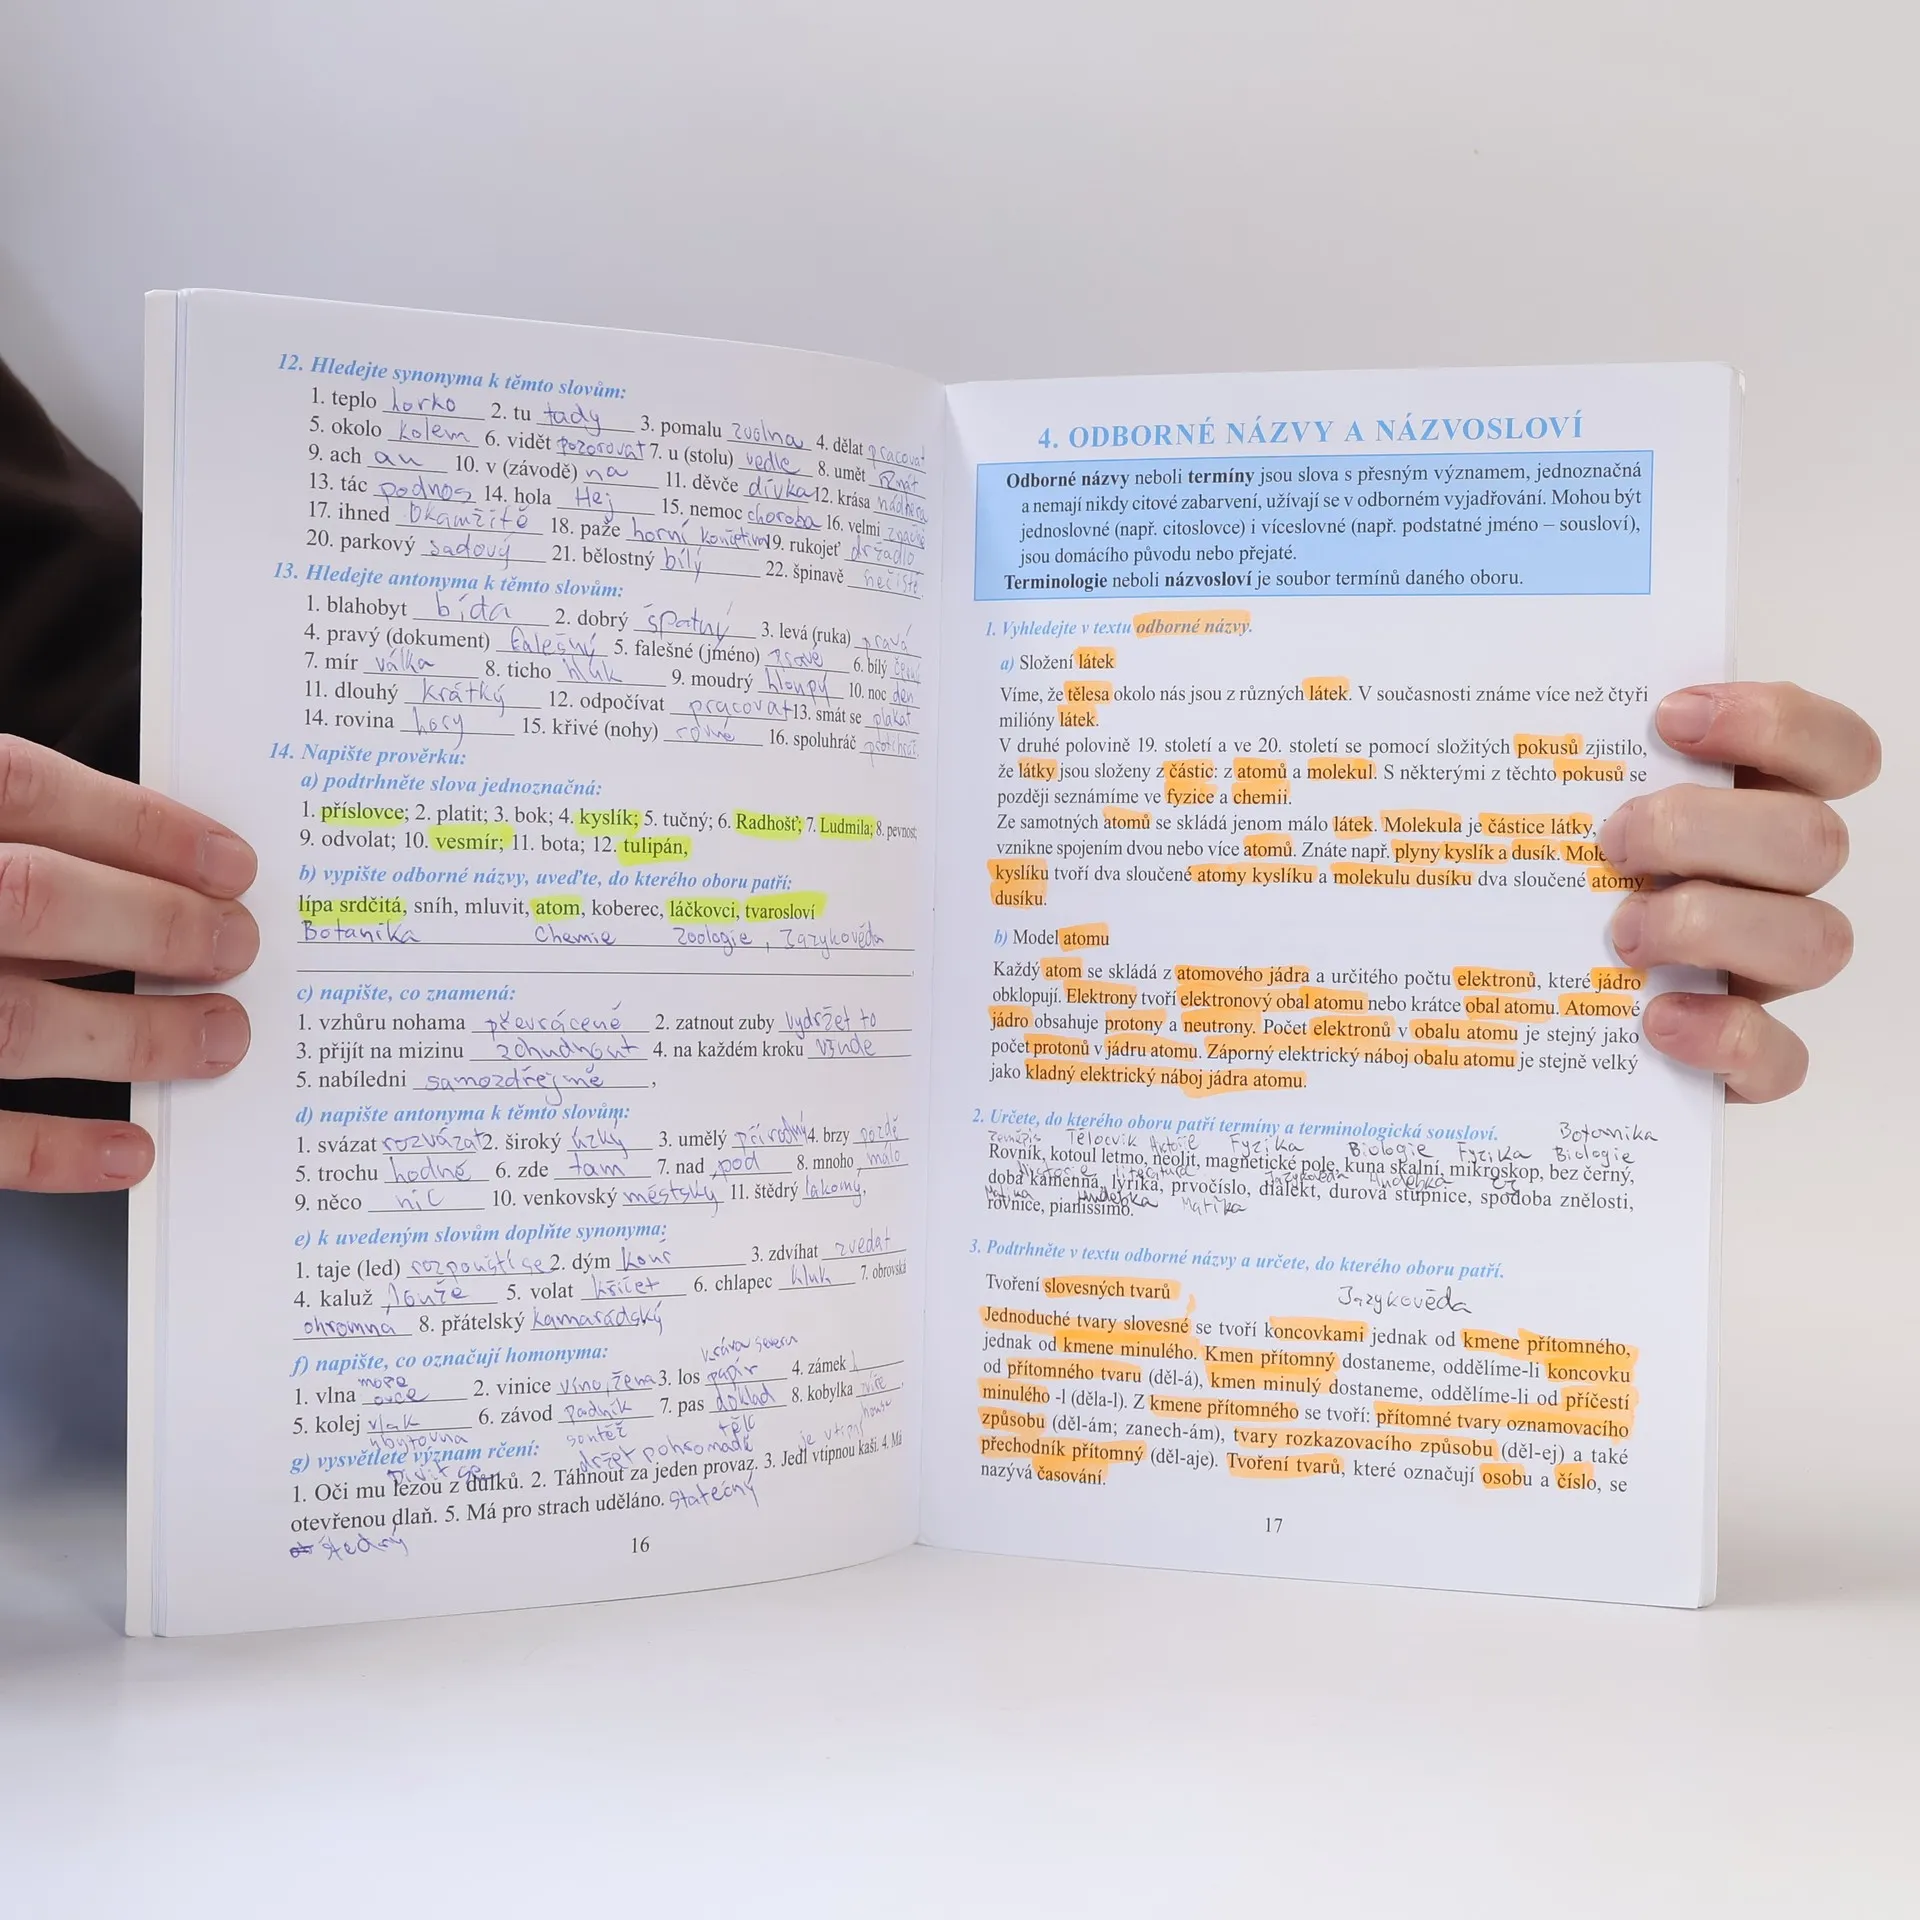 12. Hledejte synonyma k těmto slovům:
1. teplo horko 2. tu tady 3. pomalu zvolna 4. dělat pracovat
5. okolo kolem 6. vidět pozorovat 7. u (stolu) vedle 8. umět
9. ach au 10. v (závodě) na 11. děvče dívka 12. krása nádhera
13. tác podnos 14. hola Hej 15. nemoc choroba 16. velmi značně
17. ihned Okamžitě 18. paže horní 19. rukojeť držadlo
20. parkový sadový 21. bělostný bílý 22. špinavě nečistě
13. Hledejte antonyma k těmto slovům:
1. blahobyt bída 2. dobrý špatný 3. levá (ruka) pravá
4. pravý (dokument) falešný 5. falešné (jméno) pravé 6. bílý černý
7. mír válka 8. ticho hluk 9. moudrý hloupý 10. noc den
11. dlouhý krátký 12. odpočívat pracovat 13. smát se plakat
14. rovina hory 15. křivé (nohy) rovné 16. spoluhráč protihráč
14. Napište prověrku:
a) podtrhněte slova jednoznačná:
1. příslovce; 2. platit; 3. bok; 4. kyslík; 5. tučný; 6. Radhošť; 7. Ludmila; 8. pevnost;
9. odvolat; 10. vesmír; 11. bota; 12. tulipán,
b) vypište odborné názvy, uveďte, do kterého oboru patří:
lípa srdčitá, sníh, mluvit, atom, koberec, láčkovci, tvarosloví
Botanika Chemie Zoologie, Jazykověda
c) napište, co znamená:
1. vzhůru nohama převráceně 2. zatnout zuby vydržet to
3. přijít na mizinu zchudnout 4. na každém kroku všude
5. nabíledni samozdřejmě,
d) napište antonyma k těmto slovům:
1. svázat rozvázat 2. široký úzký 3. umělý přírodný 4. brzy pozdě
5. trochu hodně 6. zde tam 7. nad pod 8. mnoho málo
9. něco nic 10. venkovský městský 11. štědrý lakomý,
e) k uvedeným slovům doplňte synonyma:
1. taje (led) rozpouští se 2. dým kouř 3. zdvíhat zvedat
4. kaluž louže 5. volat křičet 6. chlapec kluk 7. obrovská
ohromna 8. přátelský kamarádský
f) napište, co označují homonyma:
kráva severu
moře
1. vlna ovce 2. vinice víno, žena 3. los papír 4. zámek
5. kolej vlak 6. závod podnik 7. pas doklad 8. kobylka zvíře
ubytovna soutěž tělo house
g) vysvětlete význam rčení:
držet pohromadě je vtipný
Diví se
1. Oči mu lezou z důlků. 2. Táhnout za jeden provaz. 3. Jedl vtipnou kaši. 4. Má
otevřenou dlaň. 5. Má pro strach uděláno. statečný
štedrý
16
4. ODBORNÉ NÁZVY A NÁZVOSLOVÍ
Odborné názvy neboli termíny jsou slova s přesným významem, jednoznačná
a nemají nikdy citové zabarvení, užívají se v odborném vyjadřování. Mohou být
jednoslovné (např. citoslovce) i víceslovné (např. podstatné jméno – sousloví),
jsou domácího původu nebo přejaté.
Terminologie neboli názvosloví je soubor termínů daného oboru.
1. Vyhledejte v textu odborné názvy.
a) Složení látek
Víme, že tělesa okolo nás jsou z různých látek. V současnosti známe více než čtyři
milióny látek.
V druhé polovině 19. století a ve 20. století se pomocí složitých pokusů zjistilo,
že látky jsou složeny z částic: z atomů a molekul. S některými z těchto pokusů se
později seznámíme ve fyzice a chemii.
Ze samotných atomů se skládá jenom málo látek. Molekula je částice látky,
vznikne spojením dvou nebo více atomů. Znáte např. plyny kyslík a dusík. Mole
kyslíku tvoří dva sloučené atomy kyslíku a molekulu dusíku dva sloučené atomy
dusíku.
b) Model atomu
Každý atom se skládá z atomového jádra a určitého počtu elektronů, které jádro
obklopují. Elektrony tvoří elektronový obal atomu nebo krátce obal atomu. Atomové
jádro obsahuje protony a neutrony. Počet elektronů v obalu atomu je stejný jako
počet protonů v jádru atomu. Záporný elektrický náboj obalu atomu je stejně velký
jako kladný elektrický náboj jádra atomu.
2. Určete, do kterého oboru patří termíny a terminologická sousloví.
Zeměpis Tělocvik Historie Fyzika Biologie Fyzika Botanika
Biologie
Rovník, kotoul letmo, neolit, magnetické pole, kuna skalní, mikroskop, bez černý,
Historie literatura Jazykověda Hudebka ČJ
doba kamenná, lyrika, prvočíslo, dialekt, durová stupnice, spodoba znělosti,
Matika Hudebka Matika
rovnice, pianissimo.
3. Podtrhněte v textu odborné názvy a určete, do kterého oboru patří.
Tvoření slovesných tvarů Jazykověda
Jednoduché tvary slovesné se tvoří koncovkami jednak od kmene přítomného,
jednak od kmene minulého. Kmen přítomný dostaneme, oddělíme-li koncovku
od přítomného tvaru (děl-á), kmen minulý dostaneme, oddělíme-li od příčestí
minulého -l (děla-l). Z kmene přítomného se tvoří: přítomné tvary oznamovacího
způsobu (děl-ám; zanech-ám), tvary rozkazovacího způsobu (děl-ej) a také
přechodník přítomný (děl-aje). Tvoření tvarů, které označují osobu a číslo, se
nazývá časování.
17